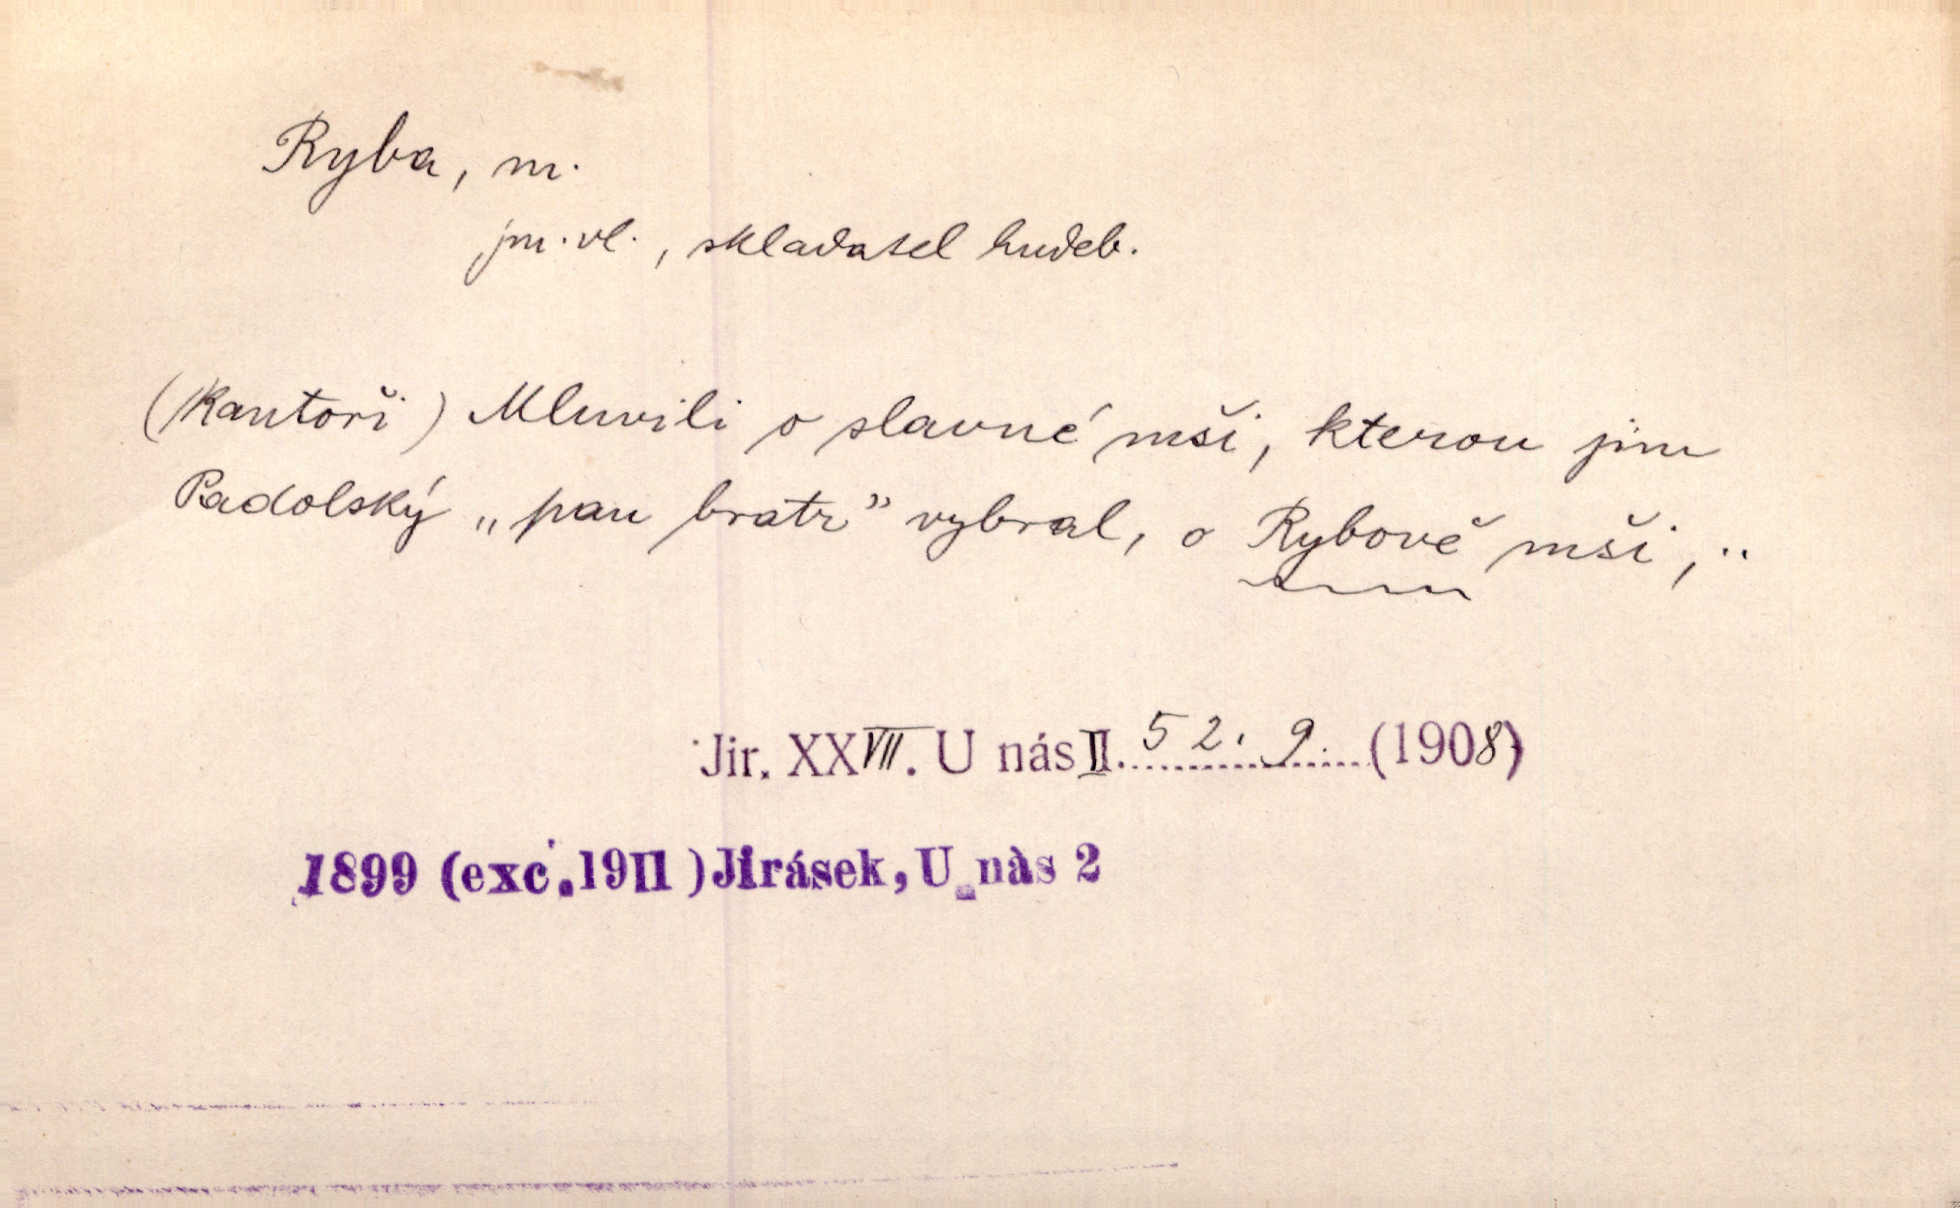 Ryba, m.
jm. vl., skladatel hudeb.
(Kantoři) Mluvili o slavné mši, kterou jim
Padolský „pan bratr” vybral, o Rybově mši, ..
Jir. XXVII. U nás II. 52. 9. (1908)
1899 (exc. 19II) Jirásek, U nàs 2